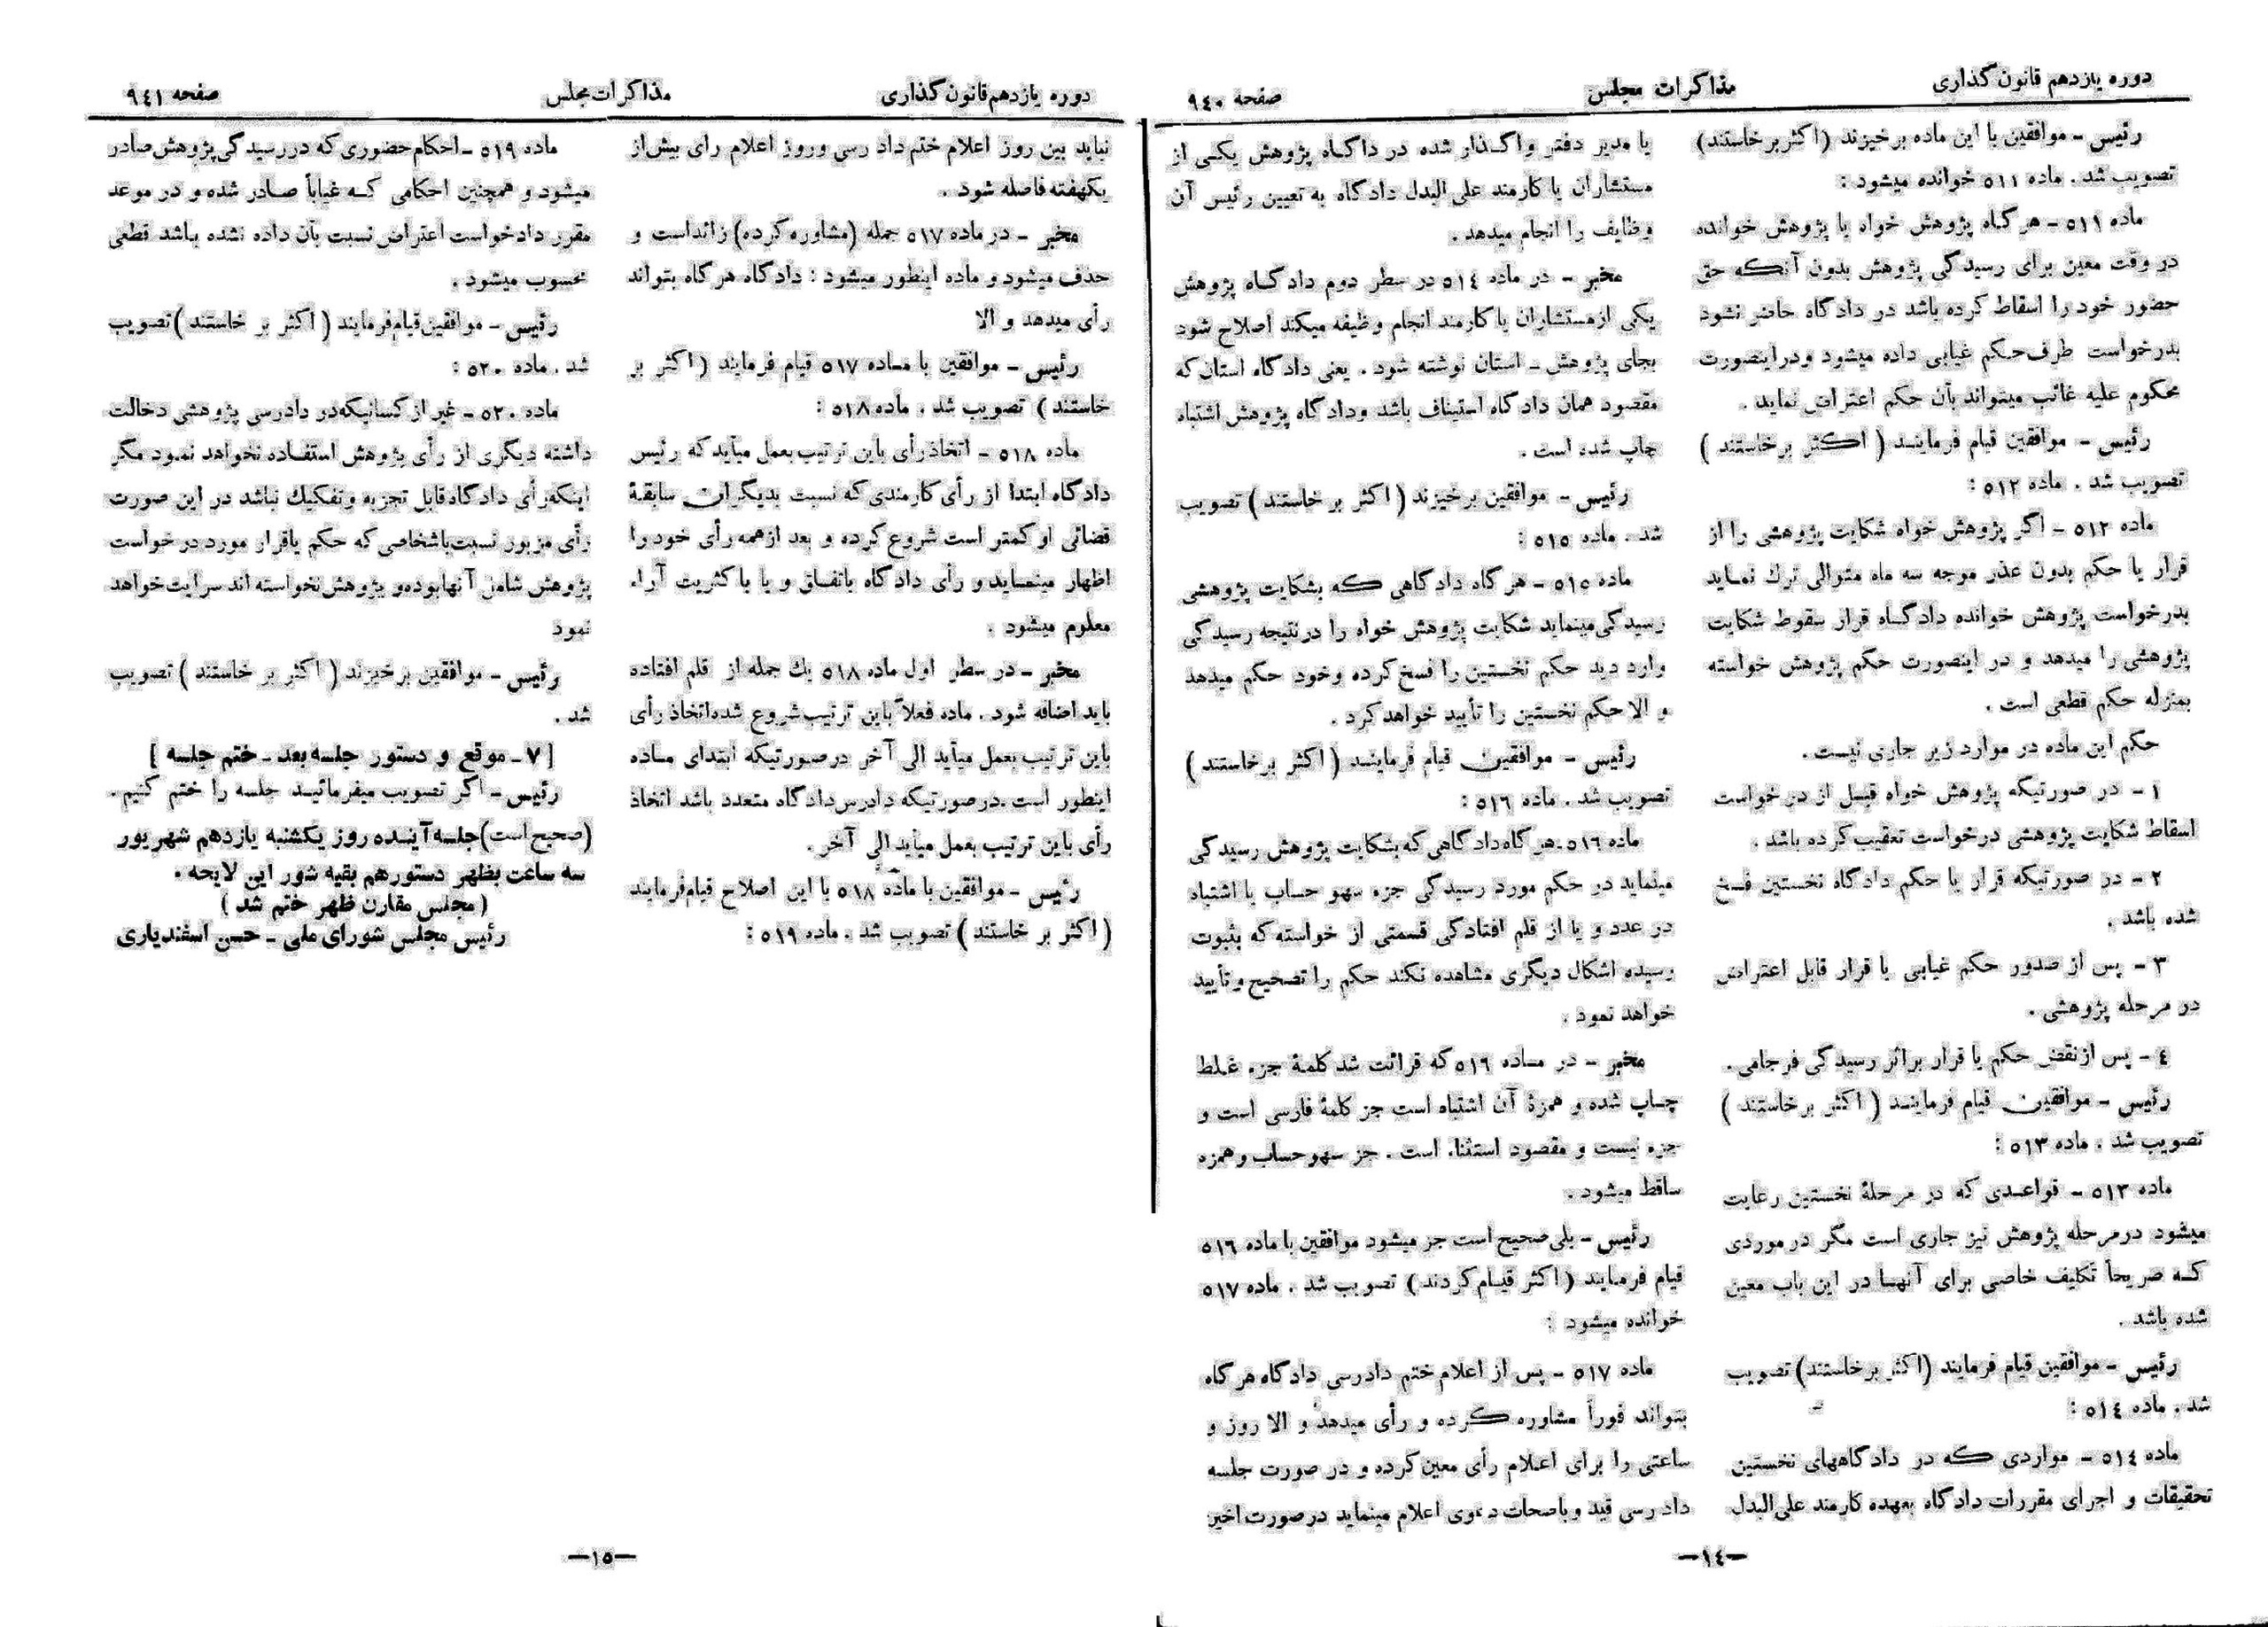 دوره یازدهم قانون گذاری
مذاکرات مجلس
صفحه ۹٤۰
رئیس - موافقین با این ماده برخیزند (اکثر برخاستند)
تصویب شد . ماده ٥۱۱ خوانده میشود :
ماده ٥۱۱ - هر گاه پژوهش خواه یا پژوهش خوانده
در وقت معین برای رسیدگی پژوهش بدون آنکه حق
حضور خود را اسقاط کرده باشد در دادگاه حاضر نشود
بدرخواست طرف حکم غیابی داده میشود و در اینصورت
محکوم علیه غائب میتواند بآن حکم اعتراض نماید .
رئیس - موافقین قیام فرمایند ( اکثر برخاستند )
تصویب شد . ماده ٥۱۲ :
ماده ٥۱۲ - اگر پژوهش خواه شکایت پژوهشی را از
قرار یا حکم بدون عذر موجه سه ماه متوالی ترك نماید
بدرخواست پژوهش خوانده دادگاه قرار سقوط شکایت
پژوهشی را میدهد و در اینصورت حکم پژوهش خواسته
بمنزله حکم قطعی است .
حکم این ماده در موارد زیر جاری نیست.
۱ - در صورتیکه پژوهش خواه قبل از درخواست
اسقاط شکایت پژوهشی درخواست تعقیب کرده باشد .
۲ - در صورتیکه قرار یا حکم دادگاه نخستین فسخ
شده باشد .
۳ - پس از صدور حکم غیابی یا قرار قابل اعتراض
در مرحله پژوهشی .
٤ - پس از نقض حکم یا قرار بر اثر رسیدگی فرجامی .
رئیس - موافقین قیام فرمایند ( اکثر برخاستند )
تصویب شد . ماده ٥۱۳ :
ماده ٥۱۳ - قواعدی که در مرحلهٔ نخستین رعایت
میشود در مرحله پژوهش نیز جاری است مگر در موردی
که صریحاً تکلیف خاصی برای آنها در این باب معین
شده باشد .
رئیس - موافقین قیام فرمایند (اکثر برخاستند) تصویب
شد . ماده ٥۱٤ :
ماده ٥۱٤ - مواردی که در دادگاههای نخستین
تحقیقات و اجرای مقررات دادگاه بعهده کارمند علی البدل
یا مدیر دفتر واگذار شده در داگاه پژوهش یکی از
مستشاران یا کارمند علی البدل دادگاه به تعیین رئیس آن
وظایف را انجام میدهد .
مخبر - در ماده ٥۱٤ در سطر دوم دادگاه پژوهش
یکی از مستشاران یا کارمند انجام وظیفه میکند اصلاح شود
بجای پژوهش - استان نوشته شود . یعنی دادگاه استان که
مقصود همان دادگاه استیناف باشد و دادگاه پژوهش اشتباه
چاپ شده است .
رئیس - موافقین برخیزند ( اکثر بر خاستند ) تصویب
شد . ماده ٥۱٥ :
ماده ٥۱٥ - هر گاه دادگاهی که بشکایت پژوهشی
رسیدگی مینماید شکایت پژوهش خواه را در نتیجه رسیدگی
وارد دید حکم نخستین را فسخ کرده و خود حکم میدهد
و الا حکم نخستین را تأیید خواهد کرد .
رئیس - موافقین قیام فرمایند ( اکثر برخاستند )
تصویب شد . ماده ٥۱٦ :
ماده ٥۱٦ - هر گاه دادگاهی که بشکایت پژوهش رسیدگی
مینماید در حکم مورد رسیدگی جزء سهو حساب یا اشتباه
در عدد و یا از قلم افتادگی قسمتی از خواسته که بثبوت
رسیده اشکال دیگری مشاهده نکند حکم را تصحیح و تأیید
خواهد نمود .
مخبر - در ماده ٥۱٦ که قرائت شد کلمهٔ جزء غلط
چاپ شده و همزهٔ آن اشتباه است جز کلمهٔ فارسی است و
جزء نیست و مقصود استثناء است . جز سهو حساب و همزه
ساقط میشود .
رئیس - بلی صحیح است جز میشود موافقین با ماده ٥۱٦
قیام فرمایند (اکثر قیام کردند ) تصویب شد . ماده ٥۱۷
خوانده میشود :
ماده ٥۱۷ - پس از اعلام ختم دادرسی دادگاه هر گاه
بتواند فوراً مشاوره کرده و رأی میدهد و الا روز و
ساعتی را برای اعلام رأی معین کرده و در صورت جلسه
دادرسی قید و باصحاب دعوی اعلام مینماید در صورت اخیر
—۱٤—
دوره یازدهم قانون گذاری
مذاکرات مجلس
صفحه ۹٤۱
نباید بین روز اعلام ختم داد رسی و روز اعلام رای بیش از
یکهفته فاصله شود .
مخبر - در ماده ٥۱۷ جمله (مشاوره کرده) زائد است و
حذف میشود و ماده اینطور میشود : دادگاه هر گاه بتواند
رأی میدهد و الا
رئیس - موافقین با ماده ٥۱۷ قیام فرمایند ( اکثر بر
خاستند ) تصویب شد . ماده ٥۱۸ :
ماده ٥۱۸ - اتخاذ رأی باین ترتیب بعمل میآید که رئیس
دادگاه ابتدا از رأی کارمندی که نسبت بدیگران سابقهٔ
قضائی او کمتر است شروع کرده و بعد از همه رأی خود را
اظهار مینماید و رأی دادگاه باتفاق و یا باکثریت آراء
معلوم میشود .
مخبر - در سطر اول ماده ٥۱۸ یك جمله از قلم افتاده
باید اضافه شود . ماده فعلاً باین ترتیب شروع شده اتخاذ رأی
باین ترتیب بعمل میآید الی آخر در صورتیکه ابتدای ماده
اینطور است . در صورتیکه دادرس دادگاه متعدد باشد اتخاذ
رأی باین ترتیب بعمل میآید الی آخر .
رئیس - موافقین با ماده ٥۱۸ با این اصلاح قیام فرمایند
( اکثر بر خاستند ) تصویب شد . ماده ٥۱۹ :
ماده ٥۱۹ - احکام حضوری که در رسیدگی پژوهش صادر
میشود و همچنین احکامی که غیاباً صادر شده و در موعد
مقرر دادخواست اعتراض نسبت بآن داده نشده باشد قطعی
محسوب میشود .
رئیس - موافقین قیام فرمایند ( اکثر بر خاستند ) تصویب
شد . ماده ٥۲۰ :
ماده ٥۲۰ - غیر از کسانیکه در دادرسی پژوهشی دخالت
داشته دیگری از رأی پژوهش استفاده نخواهد نمود مگر
اینکه رأی دادگاه قابل تجزیه و تفکیك نباشد در این صورت
رأی مزبور نسبت باشخاصی که حکم یا قرار مورد درخواست
پژوهش شامل آنها بوده و پژوهش نخواسته اند سرایت خواهد
نمود
رئیس - موافقین برخیزند ( اکثر بر خاستند ) تصویب
شد .
[ ۷ - موقع و دستور جلسه بعد - ختم جلسه ]
رئیس - اگر تصویب میفرمائید جلسه را ختم کنیم .
(صحیح است) جلسه آینده روز یکشنبه یازدهم شهریور
سه ساعت بظهر دستور هم بقیه شور این لایحه .
( مجلس مقارن ظهر ختم شد )
رئیس مجلس شورای ملی - حسن اسفندیاری
—۱٥—